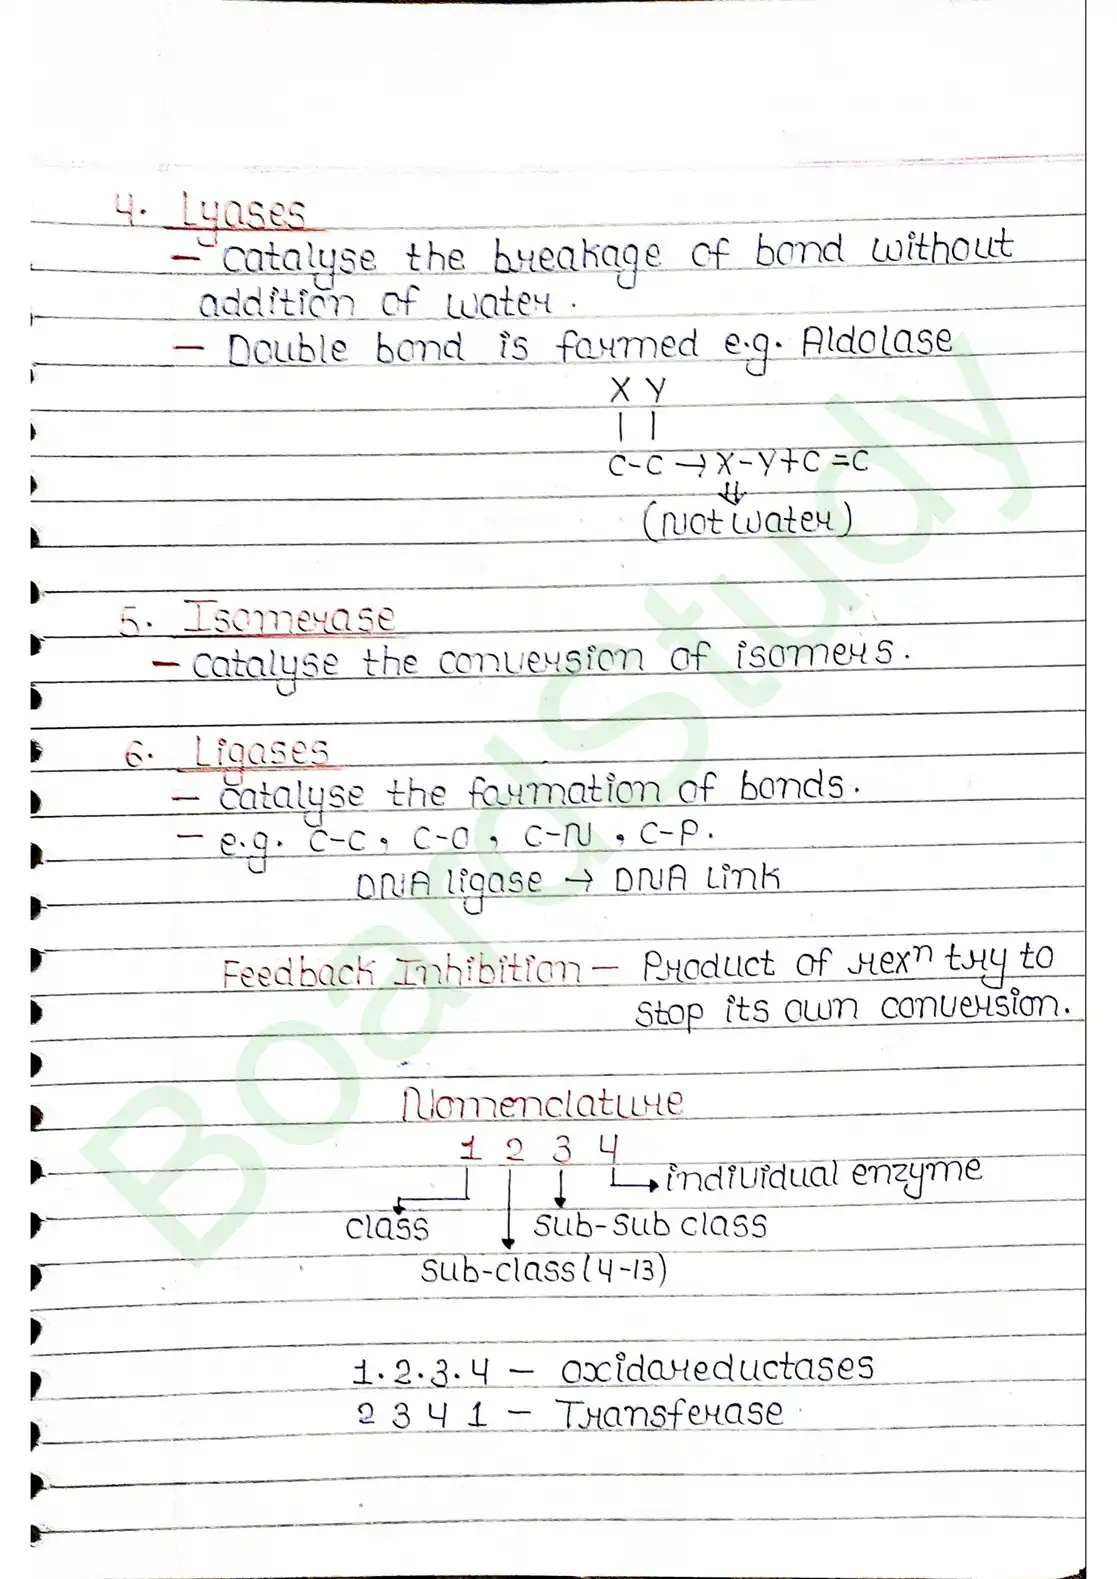 4. Lyases
- catalyse the breakage of bond without
addition of water.
- Double bond is formed e.g. Aldolase
X Y
| |
C-C → X-Y+C=C
⇓
(Not water)
5. Isomerase
- catalyse the conversion of isomers.
6. Ligases
- catalyse the formation of bonds.
- e.g. C-C, C-O, C-N, C-P.
DNA ligase → DNA Link
Feedback Inhibition - Product of rexⁿ try to
stop its own conversion.
Nomenclature
1 2 3 4
individual enzyme
class sub-sub class
sub-class (4-13)
1.2.3.4 - oxidoreductases
2 3 4 1 - Transferase
BoardStudy